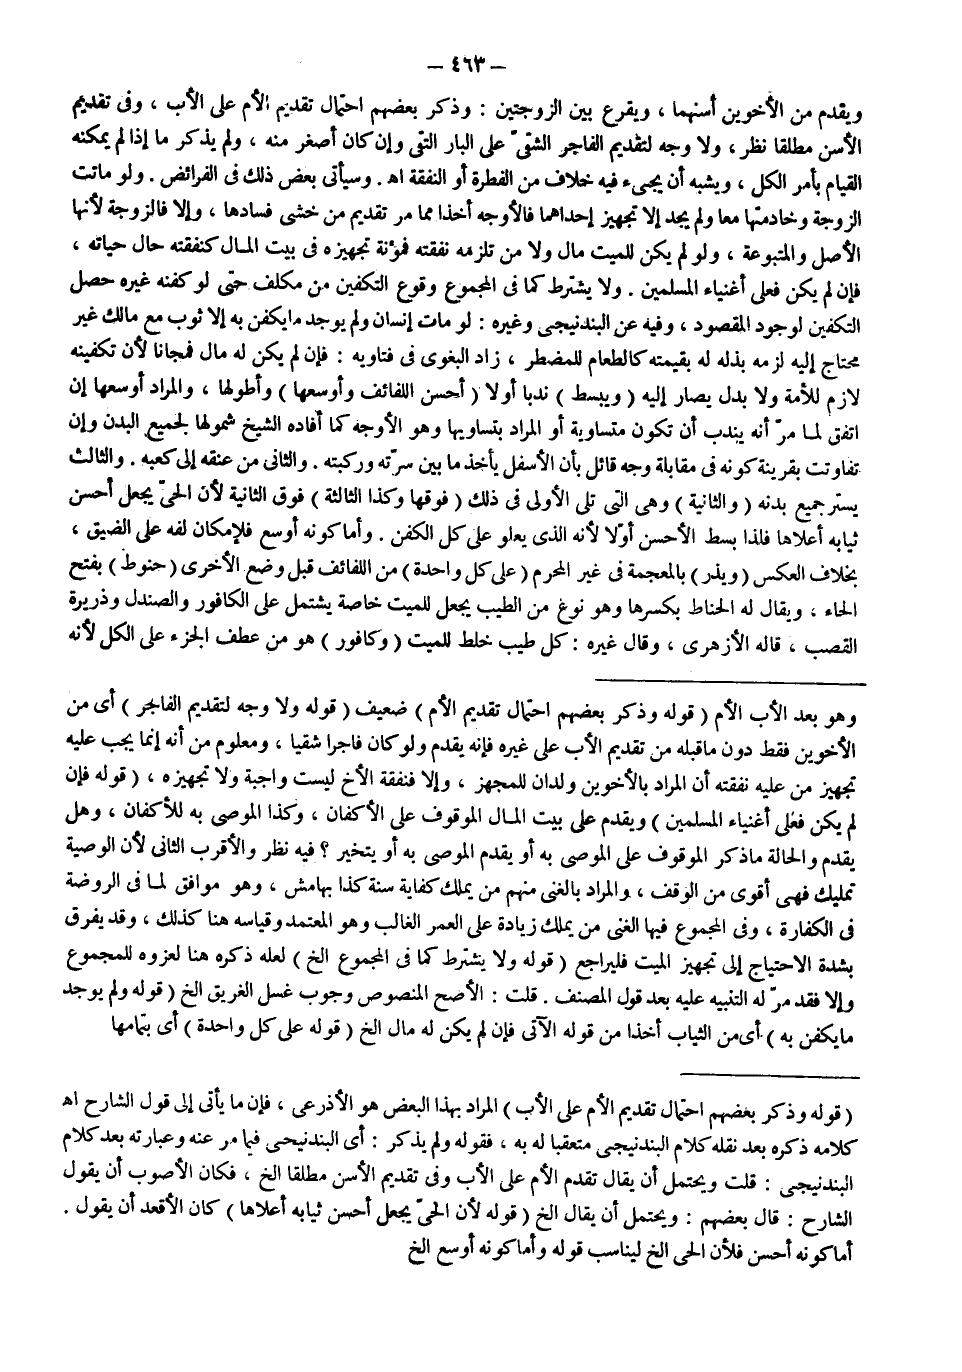 — ٤٦٣ —
ويقدم من الأخوين أسنهما ، ويقرع بين الزوجتين : وذكر بعضهم احتمال تقديم الأم على الأب ، وفى تقديم
الأسن مطلقا نظر ، ولا وجه لتقديم الفاجر الشقىّ على البار التقى وإن كان أصغر منه ، ولم يذكر ما إذا لم يمكنه
القيام بأمر الكل ، ويشبه أن يجىء فيه خلاف من الفطرة أو النفقة اهـ . وسيأتى بعض ذلك فى الفرائض . ولو ماتت
الزوجة وخادمتها معا ولم يجد إلا تجهيز إحداهما فالأوجه أخذا مما مر تقديم من خشى فسادها ، وإلا فالزوجة لأنها
الأصل والمتبوعة ، ولو لم يكن للميت مال ولا من تلزمه نفقته فمؤنة تجهيزه فى بيت المـال كنفقته حال حياته ،
فإن لم يكن فعلى أغنياء المسلمين . ولا يشترط كما فى المجموع وقوع التكفين من مكلف حتى لو كفنه غيره حصل
التكفين لوجود المقصود ، وفيه عن البندنيجى وغيره : لو مات إنسان ولم يوجد مايكفن به إلا ثوب مع مالك غير
محتاج إليه لزمه بذله له بقيمته كالطعام للمضطر ، زاد البغوى فى فتاويه : فإن لم يكن له مال فمجانا لأن تكفينه
لازم للأمة ولا بدل يصار إليه ( ويبسط ) ندبا أولا ( أحسن اللفائف وأوسعها ) وأطولها ، والمراد أوسعها إن
اتفق لمـا مرّ أنه يندب أن تكون متساوية أو المراد بتساويها وهو الأوجه كما أفاده الشيخ شمولها لجميع البدن وإن
تفاوتت بقرينة كونه فى مقابلة وجه قائل بأن الأسفل يأخذ ما بين سرّته وركبته . والثانى من عنقه إلى كعبه . والثالث
يستر جميع بدنه ( والثانية ) وهى التى تلى الأولى فى ذلك ( فوقها وكذا الثالثة ) فوق الثانية لأن الحىّ يجعل أحسن
ثيابه أعلاها فلذا بسط الأحسن أوّلا لأنه الذى يعلو على كل الكفن . وأما كونه أوسع فلإمكان لفه على الضيق ،
بخلاف العكس ( ويذر ) بالمعجمة فى غير المحرم ( على كل واحدة ) من اللفائف قبل وضع الأخرى ( حنوط ) بفتح
الحاء ، ويقال له الحناط بكسرها وهو نوع من الطيب يجعل للميت خاصة يشتمل على الكافور والصندل وذريرة
القصب ، قاله الأزهرى ، وقال غيره : كل طيب خلط للميت ( وكافور ) هو من عطف الجزء على الكل لأنه
وهو بعد الأب الأم ( قوله وذكر بعضهم احتمال تقديم الأم ) ضعيف ( قوله ولا وجه لتقديم الفاجر ) أى من
الأخوين فقط دون ماقبله من تقديم الأب على غيره فإنه يقدم ولو كان فاجرا شقيا ، ومعلوم من أنه إنما يجب عليه
تجهيز من عليه نفقته أن المراد بالأخوين ولدان للمجهز ، وإلا فنفقة الأخ ليست واجبة ولا تجهيزه ، ( قوله فإن
لم يكن فعلى أغنياء المسلمين ) ويقدم على بيت المـال الموقوف على الأكفان ، وكذا الموصى به للأكفان ، وهل
يقدم والحالة ماذكر الموقوف على الموصى به أو يقدم الموصى به أو يتخير ؟ فيه نظر والأقرب الثانى لأن الوصية
تمليك فهى أقوى من الوقف ، والمراد بالغنى منهم من يملك كفاية سنة كذا بهامش ، وهو موافق لمـا فى الروضة
فى الكفارة ، وفى المجموع فيها الغنى من يملك زيادة على العمر الغالب وهو المعتمد وقياسه هنا كذلك ، وقد يفرق
بشدة الاحتياج إلى تجهيز الميت فليراجع ( قوله ولا يشترط كما فى المجموع الخ ) لعله ذكره هنا لعزوه للمجموع
وإلا فقد مرّ له التنبيه عليه بعد قول المصنف . قلت : الأصح المنصوص وجوب غسل الغريق الخ ( قوله ولم يوجد
مايكفن به ) أى من الثياب أخذا من قوله الآتى فإن لم يكن له مال الخ ( قوله على كل واحدة ) أى بتمامها
( قوله وذكر بعضهم احتمال تقديم الأم على الأب ) المراد بهذا البعض هو الأذرعى ، فإن ما يأتى إلى قول الشارح اهـ
كلامه ذكره بعد نقله كلام البندنيجى متعقبا له به ، فقوله ولم يذكر : أى البندنيجى فيما مر عنه وعبارته بعد كلام
البندنيجى : قلت ويحتمل أن يقال تقدم الأم على الأب وفى تقديم الأسن مطلقا الخ ، فكان الأصوب أن يقول
الشارح : قال بعضهم : ويحتمل أن يقال الخ ( قوله لأن الحىّ يجعل أحسن ثيابه أعلاها ) كان الأقعد أن يقول .
أما كونه أحسن فلأن الحى الخ ليناسب قوله وأما كونه أوسع الخ